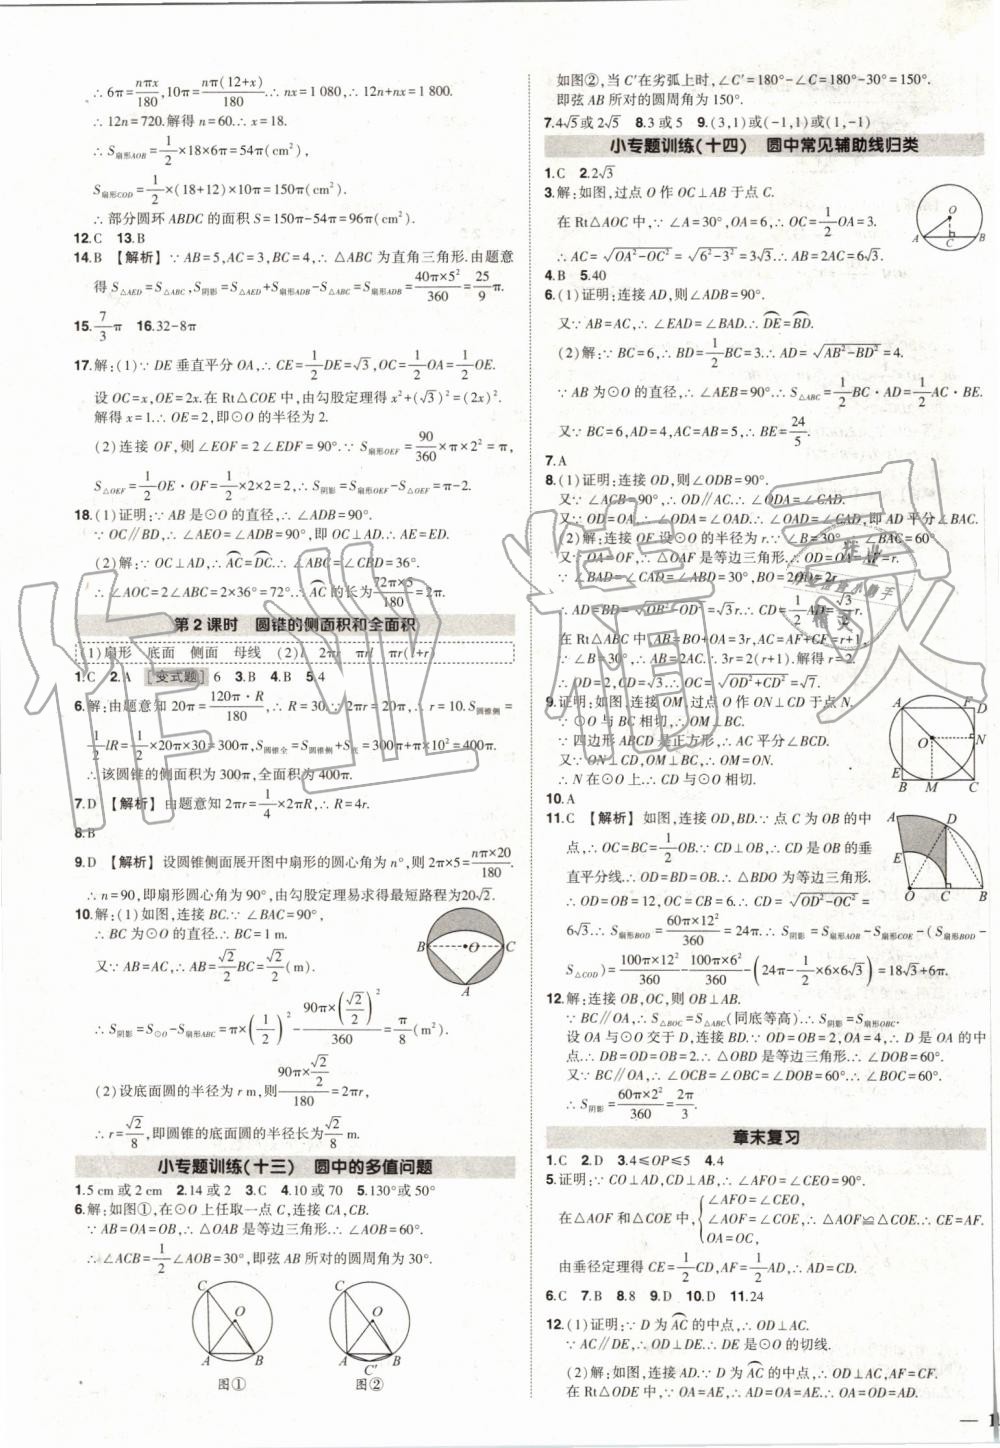 ∴ 6π=nπx/180,10π=nπ(12+x)/180.∴ nx=1 080,12n+nx=1 800.
∴ 12n=720.解得 n=60.∴ x=18.
∴ S扇形AOB=1/2×18×6π=54π(cm²),
S扇形COD=1/2×(18+12)×10π=150π(cm²).
∴ 部分圆环 ABDC 的面积 S=150π-54π=96π(cm²).
12.C 13.B
14.B 【解析】∵ AB=5,AC=3,BC=4,∴ △ABC 为直角三角形.由题意
得 S△AED=S△ABC,S阴影=S△AED+S扇形ADB-S△ABC=S扇形ADB=40π×5²/360=25/9 π.
15.7/3 π 16.32-8π
17.解:(1)∵ DE 垂直平分 OA,∴ CE=1/2DE=√3,OC=1/2OA=1/2OE.
设 OC=x,OE=2x.在 Rt△COE 中,由勾股定理得 x²+(√3)²=(2x)².
解得 x=1.∴ OE=2,即⊙O 的半径为 2.
(2)连接 OF,则∠EOF=2∠EDF=90°.∵ S扇形OEF=90/360×π×2²=π,
S△OEF=1/2OE·OF=1/2×2×2=2,∴ S阴影=S扇形OEF-S△OEF=π-2.
18.(1)证明:∵ AB 是⊙O 的直径,∴ ∠ADB=90°.
∵ OC∥BD,∴ ∠AEO=∠ADB=90°,即 OC⊥AD.∴ AE=ED.
(2)解:∵ OC⊥AD,∴ AC⌒=DC⌒.∴ ∠ABC=∠CBD=36°.
∴ ∠AOC=2∠ABC=2×36°=72°.∴ AC⌒的长为72π×5/180=2π.
第 2 课时 圆锥的侧面积和全面积
(1)扇形 底面 侧面 母线 (2)l 2πr πrl πr(l+r)
1.C 2.A [变式题] 6 3.B 4.B 5.4
6.解:由题意知 20π=120π·R/180,∴ R=30.∵ 20π=2πr,∴ r=10.S圆锥侧=
1/2lR=1/2×20π×30=300π,S圆锥全=S圆锥侧+S底=300π+π×10²=400π.
∴ 该圆锥的侧面积为 300π,全面积为 400π.
7.D 【解析】由题意知 2πr=1/4×2πR,∴ R=4r.
8.B
9.D 【解析】设圆锥侧面展开图中扇形的圆心角为 n°,则 2π×5=nπ×20/180.
∴ n=90,即扇形圆心角为 90°,由勾股定理易求得最短路程为20√2.
10.解:(1)如图,连接 BC.∵ ∠BAC=90°,
∴ BC 为⊙O 的直径.∴ BC=1 m.
又∵ AB=AC,∴ AB=AC=√2/2(m).
∴ S阴影=S⊙O-S扇形ABC=π×(1/2)²-90π×(√2/2)²/360=π/8(m²).
(2)设底面圆的半径为 r m,则90π×√2/2/180=2πr,
∴ r=√2/8,即圆锥的底面圆的半径长为√2/8 m.
B O C
A
小专题训练(十三) 圆中的多值问题
1.5 cm 或 2 cm 2.14 或 2 3.C 4.10 或 70 5.130°或 50°
6.解:如图①,在⊙O 上任取一点 C,连接 CA,CB.
∵ AB=OA=OB,∴ △OAB 是等边三角形.∴ ∠AOB=60°.
∴ ∠ACB=1/2∠AOB=30°,即弦 AB 所对的圆周角为 30°.
C O A B
图①
C O A C′ B
图②
如图②,当 C′在劣弧上时,∠C′=180°-∠C=180°-30°=150°.
即弦 AB 所对的圆周角为 150°.
7.4√5或 2√5 8.3 或 5 9.(3,1)或(-1,1)或(1,-1)
小专题训练(十四) 圆中常见辅助线归类
1.C 2.2√3
3.解:如图,过点 O 作 OC⊥AB 于点 C.
在 Rt△AOC 中,∵ ∠A=30°,OA=6,∴ OC=1/2OA=3.
∴ AC=√(OA²-OC²)=√(6²-3²)=3√3.∴ AB=2AC=6√3.
O
A C B
4.B 5.40
6.(1)证明:连接 AD,则∠ADB=90°.
又∵ AB=AC,∴ ∠EAD=∠BAD.∴ DE⌒=BD⌒.
(2)解:∵ BC=6,∴ BD=1/2BC=3.∴ AD=√(AB²-BD²)=4.
∵ AB 为⊙O 的直径,∴ ∠AEB=90°.∴ S△ABC=1/2BC·AD=1/2AC·BE.
又∵ BC=6,AD=4,AC=AB=5,∴ BE=24/5.
7.A
8.(1)证明:连接 OD,则∠ODB=90°.
又∵ ∠ACB=90°,∴ OD∥AC.∴ ∠ODA=∠CAD.
又∵ OD=OA,∴ ∠ODA=∠OAD.∴ ∠OAD=∠CAD,即 AD 平分∠BAC.
(2)解:连接 OF,设⊙O 的半径为 r.∵ ∠B=30°,∴ ∠BAC=60°.
又∵ OA=OF,∴ △OAF 是等边三角形.∴ OD=OA=AF=r.
∵ ∠BAD=∠CAD=1/2∠BAC=30°,BO=2OD=2r,
∴ AB=BO+OA=3r,AC=AF+CF=r+1,
∴ 3r=2(r+1).解得 r=2.
∴ OD=2,CD=√3.∴ OC=√(OD²+CD²)=√7.
9.证明:如图,连接 OM,过点 O 作 ON⊥CD 于点 N.
∵ ⊙O 与 BC 相切,∴ OM⊥BC.
∵ 四边形 ABCD 是正方形,∴ AC 平分∠BCD.
又∵ ON⊥CD,OM⊥BC,∴ OM=ON.
∴ N 在⊙O 上.∴ CD 与⊙O 相切.
A D
O N
B M C
10.A
11.C 【解析】如图,连接 OD,BD.∵ 点 C 为 OB 的中
点,∴ OC=BC=1/2OB.∵ CD⊥OB,∴ CD 是 OB 的垂
直平分线.∴ OD=BD.∴ △BDO 为等边三角形.
∴ OD=OB=12,OC=CB=6.∴ CD=√(OD²-OC²)=
6√3.∴ S扇形BOD=60π×12²/360=24π.∴ S阴影=S扇形AOB-S扇形COE-(S扇形BOD-
S△COD)=100π×12²/360-100π×6²/360-(24π-1/2×6×6√3)=18√3+6π.
A D
E
O C B
12.解:连接 OB,OC,则 OB⊥AB.
∵ BC∥OA,∴ S△BOC=S△ABC(同底等高).∴ S阴影=S扇形BOC.
设 OA 与⊙O 交于 D,连接 BD.∵ OD=OB=2,OA=4,∴ D 是 OA 的中
点.∴ DB=OD=OB=2.∴ △OBD 是等边三角形.∴ ∠DOB=60°.
又∵ BC∥OA,∴ ∠OCB=∠OBC=∠DOB=60°.∴ ∠BOC=60°.
∴ S阴影=60π×2²/360=2π/3.
章末复习
1.C 2.D 3.4≤OP≤5 4.4
5.证明:∵ CO⊥AD,CD⊥AB,∴ ∠AFO=∠CEO=90°.
在△AOF 和△COE 中,{∠AFO=∠CEO, ∠AOF=∠COE,∴ △AOF≌△COE.∴ CE=AF. OA=OC,
由垂径定理得 CE=1/2CD,AF=1/2AD,∴ AD=CD.
6.C 7.B 8.8 9.D 10.D 11.24
12.(1)证明:∵ D 为AC⌒的中点,∴ OD⊥AC.
∵ AC∥DE,∴ OD⊥DE.∴ DE 是⊙O 的切线.
(2)解:如图,连接 AD.∵ D 为AC⌒的中点,∴ OD⊥AC,AF=CF.
在 Rt△ODE 中,∵ OA=AE,∴ AD=OA=AE.∴ OA=OD=AD.
作业精灵